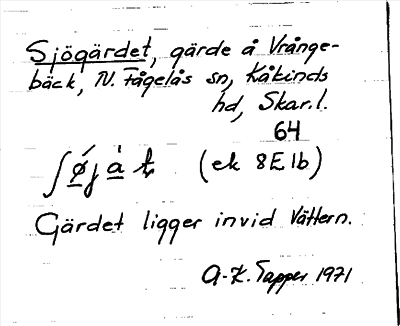 Sjögärdet, gärde å Vrånge-
bäck, N. Fågelås sn, Kåkinds
hd, Skar.l.
64
(ek 8E1b)
Gärdet ligger invid Vättern.
A-K. Tapper 1971